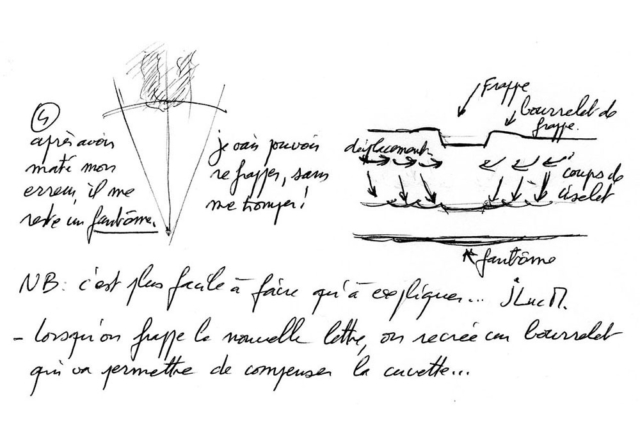 ④
après avoir
maté mon
erreur, il me
reste un fantôme.
je vais pouvoir
refrapper, sans
me tromper!
Frappe
bourrelet de
frappe.
déplacement
coups de
ciselet
fantôme
NB: c'est plus facile à faire qu'à expliquer... JLuc M.
- Lorsqu'on frappe la nouvelle lettre, on recrée un bourrelet
qui va permettre de compenser la cuvette...